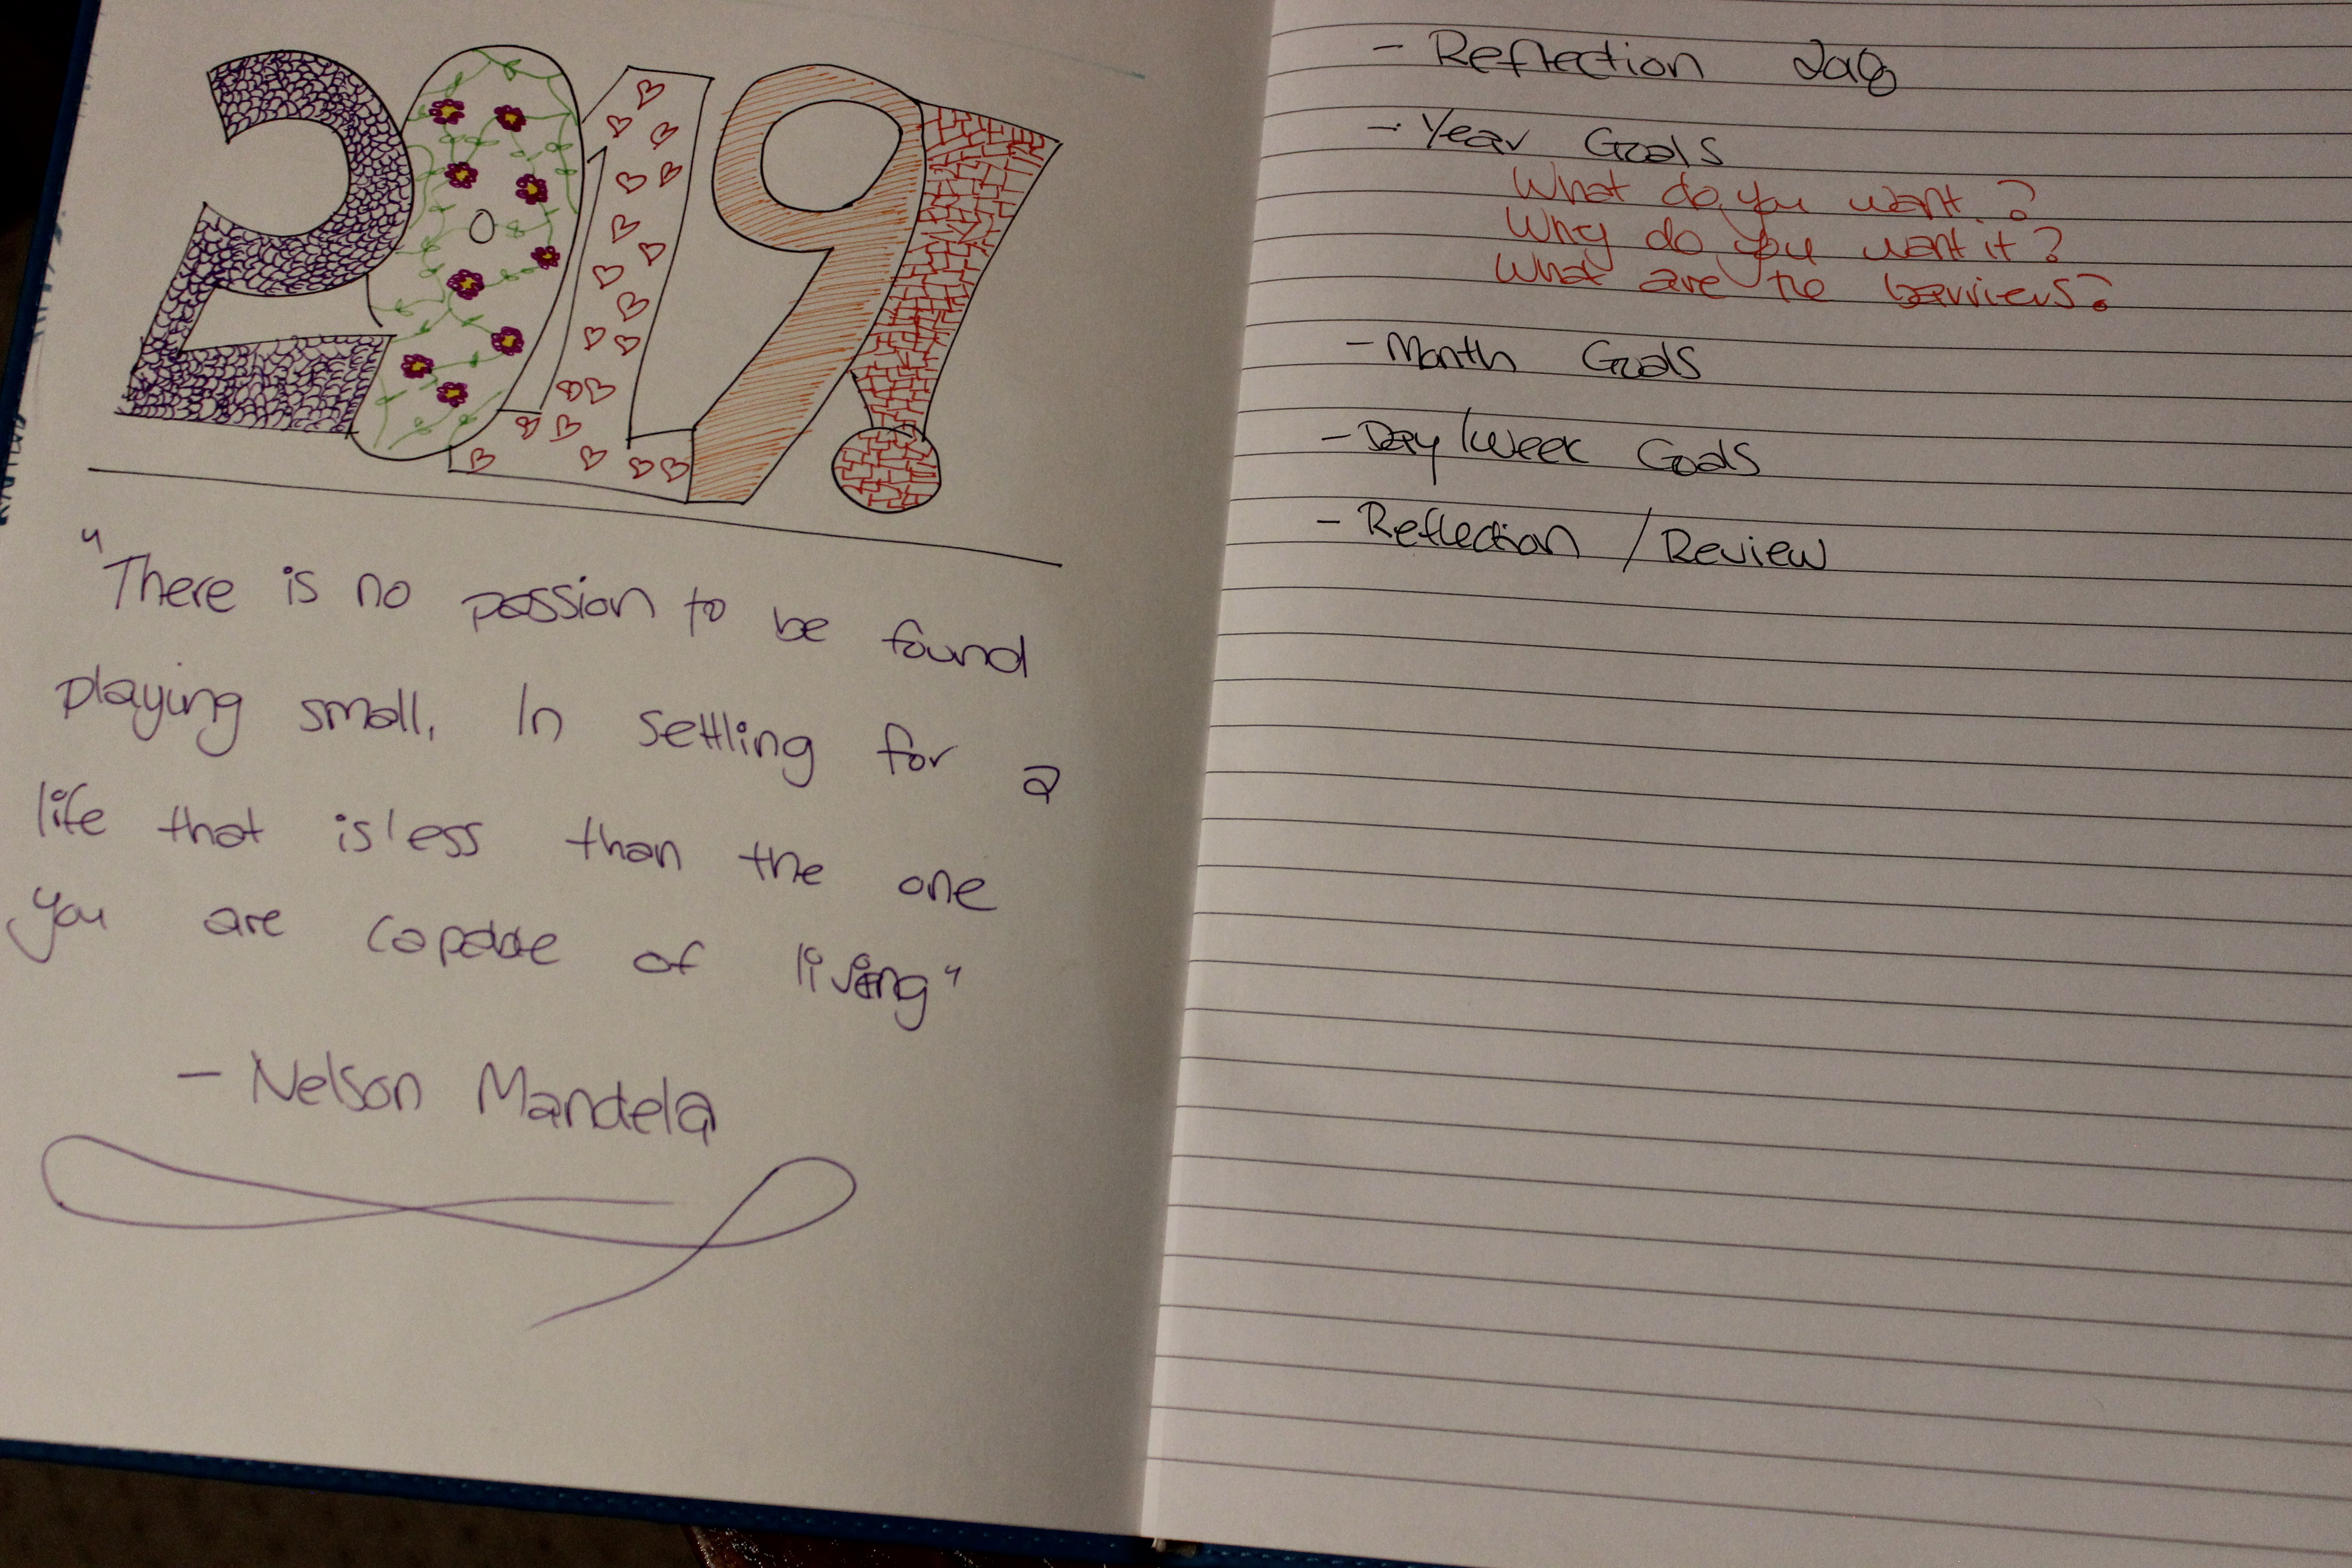 2019!
"There is no passion to be found
playing small, In settling for a
life that is less than the one
you are capable of living"
- Nelson Mandela
- Reflection 2018
- Year Goals
What do you want?
Why do you want it?
What are the barriers?
- Month Goals
- Day/Week Goals
- Reflection / Review